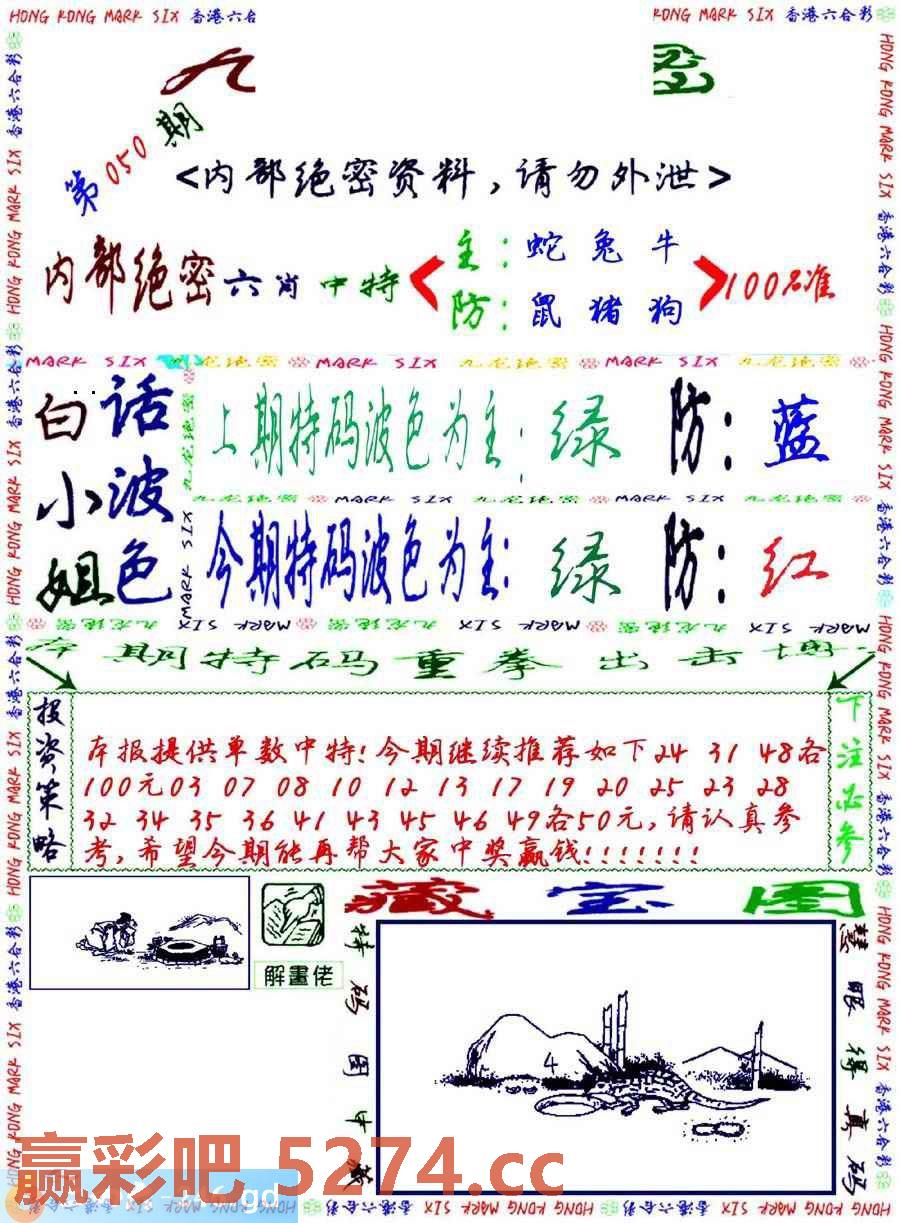 HONG KONG MARK SIX 香港六合
KONG MARK SIX 香港六合彩
九
第050期
<内部绝密资料,请勿外泄>
内部绝密六肖中特
主:蛇兔牛
防:鼠猪狗
100%准
MARK SIX 九龙绝密 MARK SIX 九龙绝密 MARK SIX 九龙绝密
白话
小波
姐色
上期特码波色为主:绿 防:蓝
九龙绝密 MARK SIX 九龙绝密 MARK SIX 九龙绝密
今期特码波色为主:绿 防:红
本期特码重拳出击
投资策略
本报提供单数中特!今期继续推荐如下24 31 48各
100元03 07 08 10 12 13 17 19 20 25 23 28
32 34 35 36 41 43 45 46 49各50元,请认真参
考,希望今期能再帮大家中奖赢钱!!!!!!!
下注必参
解畫佬
藏宝图
特码图中藏
慧眼得真码
4
赢彩吧 5274.cc
HONG KONG MARK SIX 香港六合彩